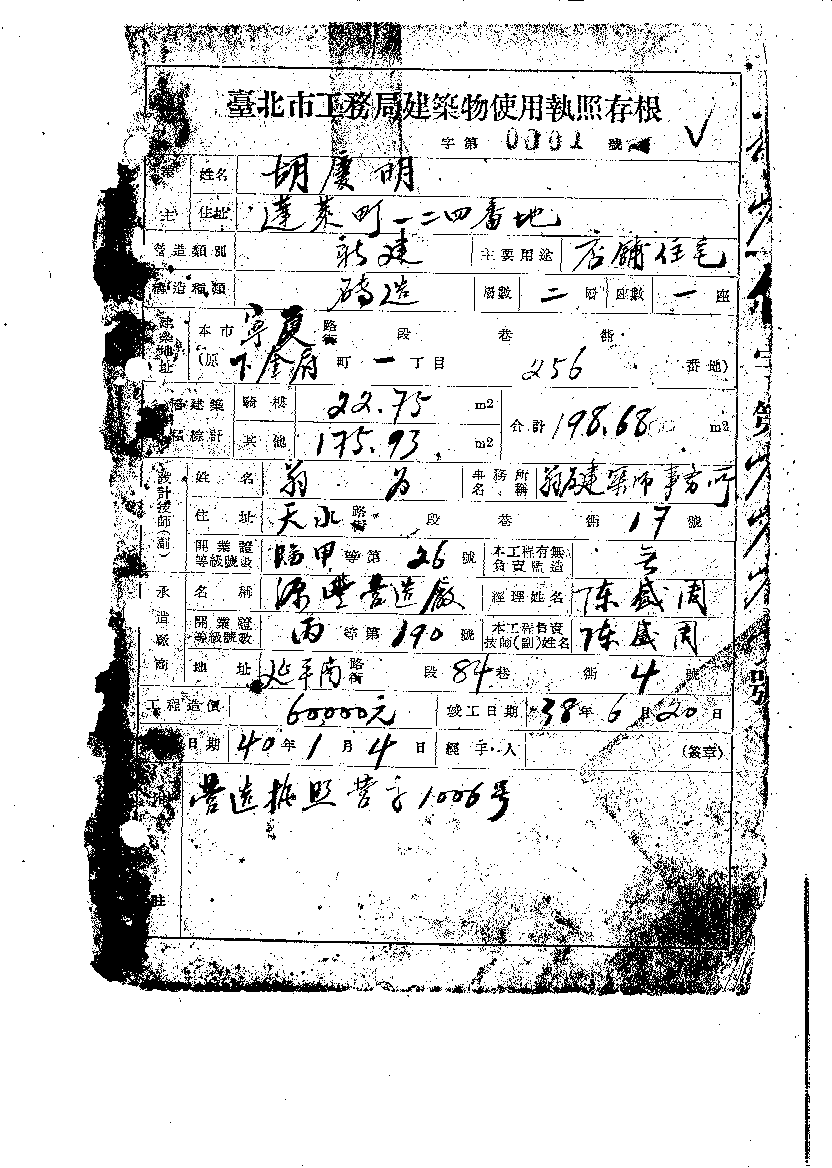 臺北市工務局建築物使用執照存根
字第 0001 號
主 姓名 胡慶明
住址 蓬萊町一二四番地
營造類別 新建 主要用途 店舖住宅
構造種類 磚造 層數 二 層 座數 一 座
建築地址 本市 寧夏 路街 段 巷 街
(原 下奎府 町 一 丁目 256 番地)
建築 騎樓 22.75 m2 合計 198.68 m2
面積計 其他 175.93 m2
設計技師(副) 姓名 翁 為 事務所名稱 翁為建築師事務所
住址 天水 路街 段 巷 衖 17 號
開業證等級號數 臨甲 等第 26 號 本工程有無負責監造 無
承造廠商 名稱 源豐營造廠 經理姓名 陈盛周
開業證等級號數 丙 等第 190 號 本工程負責技師(副)姓名 陈盛周
地址 延平南 路街 段 84 巷 衖 4 號
工程造價 60000元 竣工日期 38年6月20日
日期 40年1月4日 經手人 (簽章)
營造執照營字1006号
註